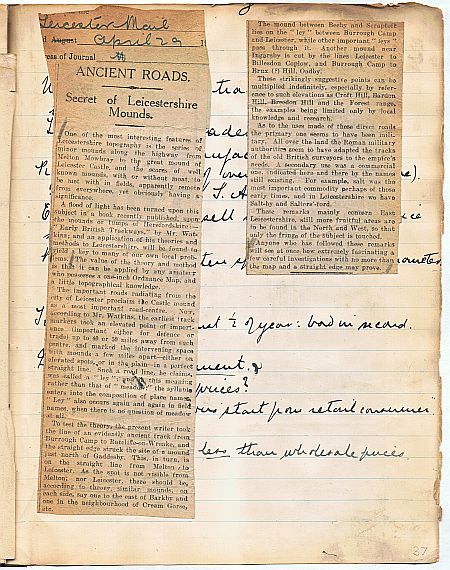 Leicester Mail
August April 29
of Journal
ANCIENT ROADS.
Secret of Leicestershire
Mounds.
One of the most interesting features of
Leicestershire topography is the series of
minor mounds along the highway from
Melton Mowbray to the great mound of
Leicester Castle, and the scores of well
known mounds, with or without moats, to
be met with in fields, apparently remote
from everywhere, yet obviously having a
significance.
A flood of light has been turned upon this
subject in a book recently published upon
the mounds or tumps of Herefordshire—
"Early British Trackways," by Mr. Wat-
kins; and an application of his theories and
methods to Leicestershire, will be found to
yield a key to many of our own local prob-
lems. The value of the theory and method
is that it can be applied by any amateur
who possesses a one-inch Ordnance Map, and
a little topographical knowledge.
The important roads radiating from the
city of Leicester proclaim the Castle mound
as a most important road-centre. Now,
according to Mr. Watkins, the earliest track
markers took an elevated point of import-
ance (important either for defence or
trade) up to 40 or 50 miles away from such
centre, and marked the intervening space
with mounds a few miles apart—either on
elevated spots, or in the plain—in a perfect
straight line. Such a road line, he claims,
was called a "ley"; and this meaning
rather than that of "meadow," the syllable
enters into the composition of place names.
"Ley" also occurs again and again in field
names, when there is no question of meadow
at all.
To test the theory, the present writer took
the line of an evidently ancient track from
Burrough Camp to Ratcliffe-o-Wreake, and
the straight edge struck the site of a mound
just north of Gaddesby. This, in turn, is
on the straight line from Melton to
Leicester. As the spot is not visible from
Melton, nor Leicester, there should be,
according to theory, similar mounds, on
each side, say one to the east of Barkby and
one in the neighbourhood of Cream Gorse,
etc.
The mound between Beeby and Scraptoft
lies on the "ley" between Burrough Camp
and Leicester, while other important "leys"
pass through it. Another mound near
Ingarsby is cut by the lines Leicester to
Billesdon Coplow, and Burrough Camp to
Brux (?) Hill, Oadby.
These strikingly suggestive points can be
multiplied indefinitely, especially by refer-
ence to such elevations as Croft Hill, Bardon
Hill, Breedon Hill and the Forest range,
the examples being limited only by local
knowledge and research.
As to the uses made of these direct roads
the primary one seems to have been mili-
tary. All over the land the Roman military
authorities seem to have adapted the tracks
of the old British surveyors to the empire's
needs. A secondary use was a commercial
one, indicated here and there by the names
still existing. For example, salt was the
most important commodity perhaps of those
early times, and in Leicestershire we have
Saltby and Salters'-ford.
These remarks mainly concern East
Leicestershire, still more fruitful areas are
to be found in the North and West, so that
only the fringe of the subject is touched.
Anyone who has followed these remarks
will see at once how extremely fascinating a
few careful investigations with no more than
the map and a straight edge may prove.
½ of year: bad in second.
prices?
start from retail consumer
less than wholesale prices
37